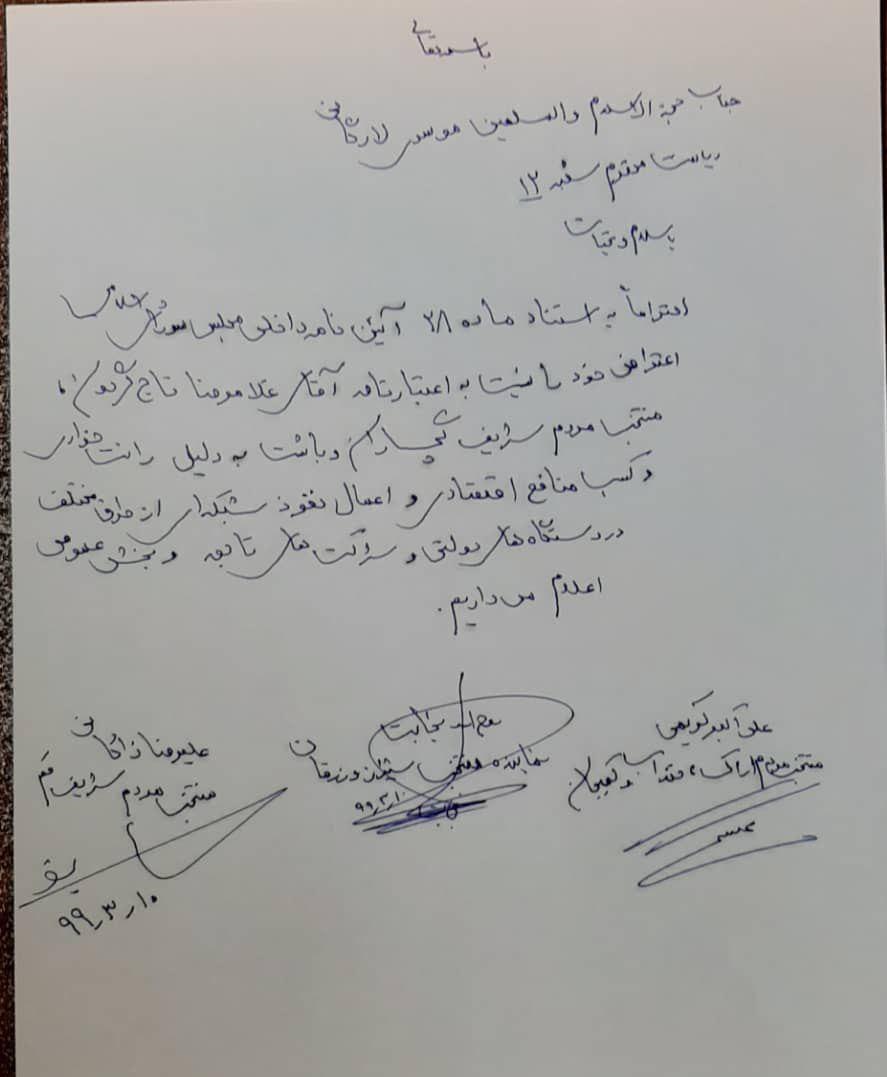 باسمه تعالی
جناب حجة الاسلام والمسلمین موسوی لارگانی
ریاست محترم شعبه ۱۲
باسلام و تحیات
احتراماً به استناد ماده ۲۸ آئین نامه داخلی مجلس شورای اسلامی
اعتراض خود را نسبت به اعتبارنامه آقای غلامرضا تاج گردون،
منتخب مردم شریف گچساران و باشت به دلیل رانت خواری
و کسب منافع اقتصادی و اعمال نفوذ شبکه ای از طرق مختلف
در دستگاه های دولتی و شرکت های تابعه و بخش عمومی
اعلام می داریم.
علی اکبر کریمی
منتخب مردم اراک، خنداب و کمیجان
روح اله نجابت
نماینده منتخب شیراز و زرقان
۹۹٫۳٫۱۰
علیرضا زاکانی
منتخب مردم شریف قم
۹۹٫۳٫۱۰